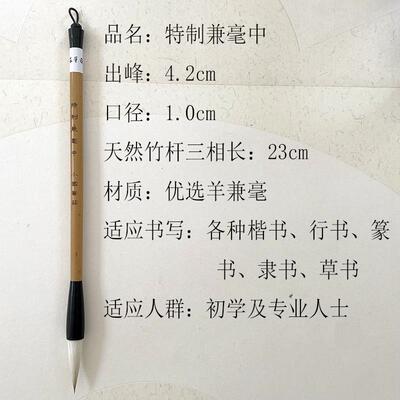 品名：特制兼毫中
出峰：4.2cm
口径：1.0cm
天然竹杆三相长：23cm
材质：优选羊兼毫
适应书写：各种楷书、行书、篆
书、隶书、草书
适应人群：初学及专业人士
特制兼毫中